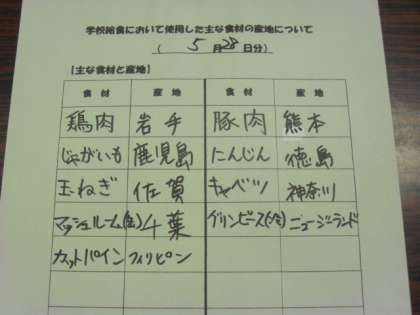 学校給食において使用した主な食材の産地について
( 5月28日分)
【主な食材と産地】
食材 産地 食材 産地
鶏肉 岩手 豚肉 熊本
じゃがいも 鹿児島 にんじん 徳島
玉ねぎ 佐賀 キャベツ 神奈川
マッシュルーム(缶) 千葉 グリンピース(冷) ニュージーランド
カットパイン フィリピン